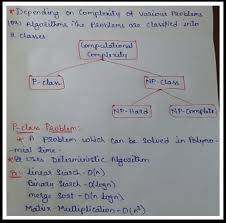 * Depending on Complexity of Various Problems
(or) Algorithms the Problems are classified into
2 classes
Computational
Complexity
P-class
NP-Class
NP-Hard
NP-Complete
P-class Problem:-
* A Problem which can be solved in Polyno-
mial time.
* It uses Deterministic Algorithm
Linear Search - O(n)
Binary Search - O(logn)
merge Sort - O(n logn)
Matrix Multiplication - O(n³)